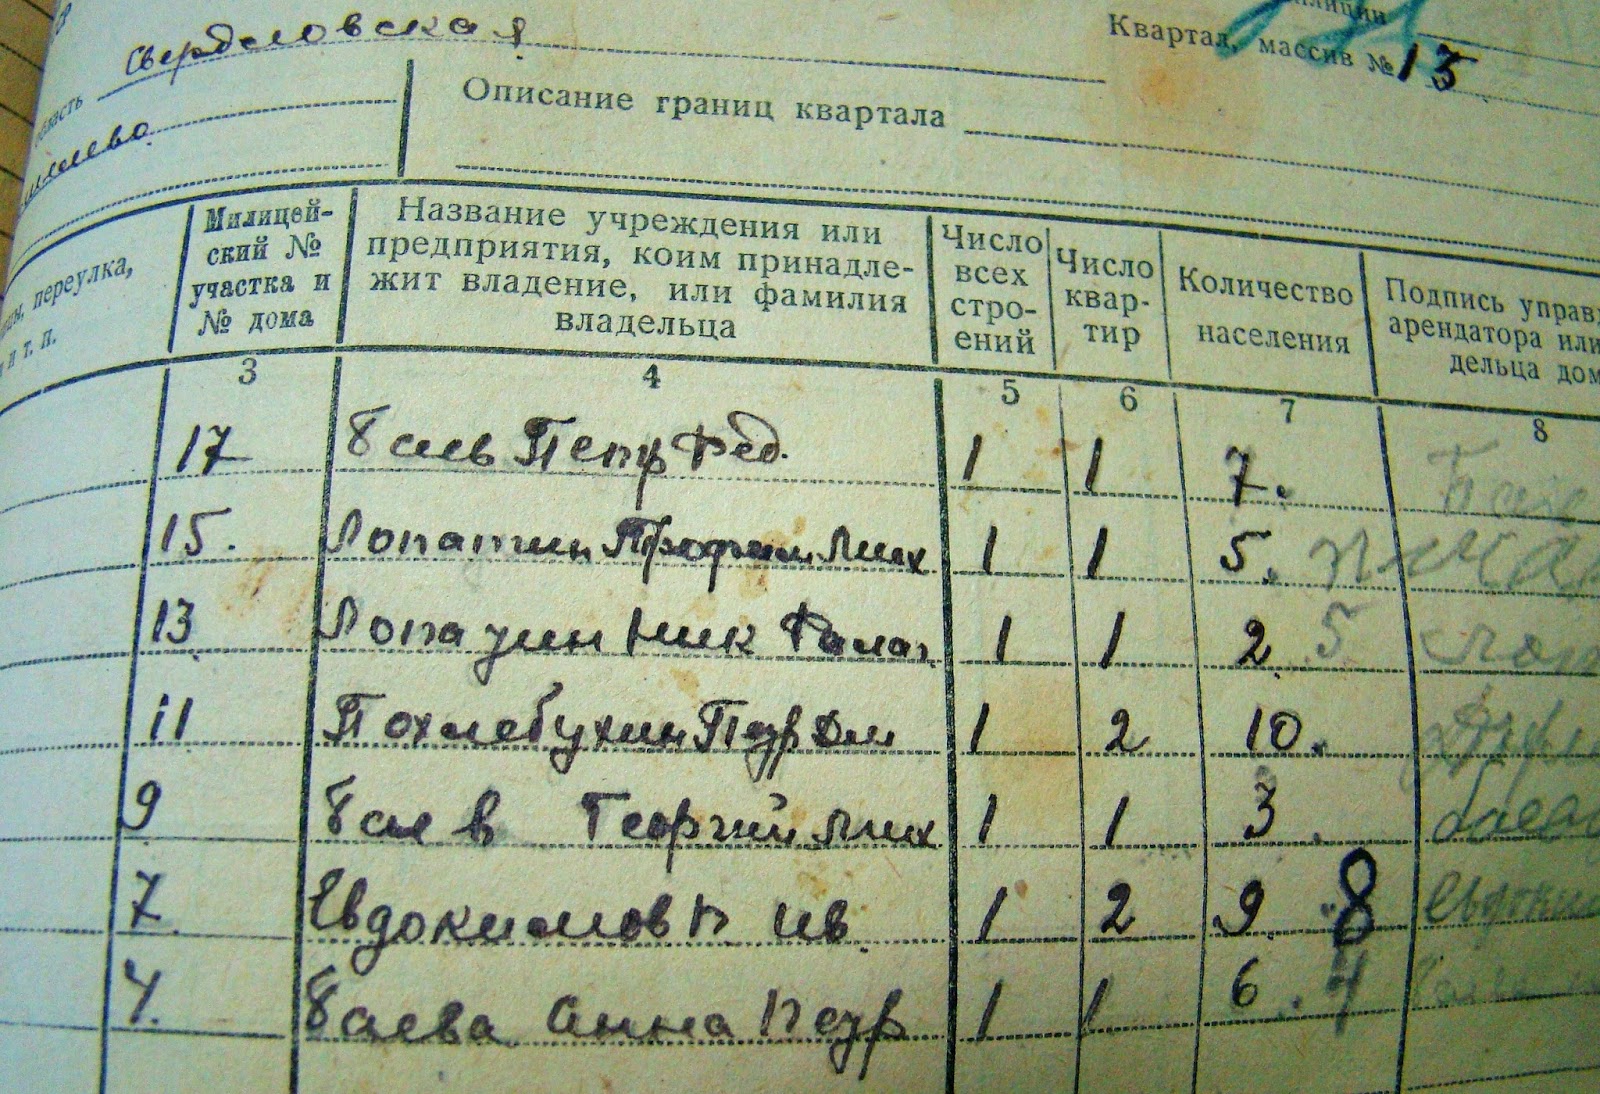 область Свердловская
Квартал, массив № 13
Описание границ квартала
переулка,
и т. п.
Милицей-
ский №
участка и
№ дома
Название учреждения или
предприятия, коим принадле-
жит владение, или фамилия
владельца
Число
всех
стро-
ений
Число
квар-
тир
Количество
населения
Подпись управ
арендатора или
дельца дом
3 4 5 6 7 8
17 Баев Петр Фед. 1 1 7. Бае
15. Лопатин Трофим Мих 1 1 5.
13 Лопатин Ник 1 1 2. 5
11 Похлебухин Петр Дм 1 2 10.
9 Баев Георгий Мих 1 1 3.
7 Евдокимов П. Ив. 1 2 9. 8 Евдоким
Баева Анна Петр 1 1 6.